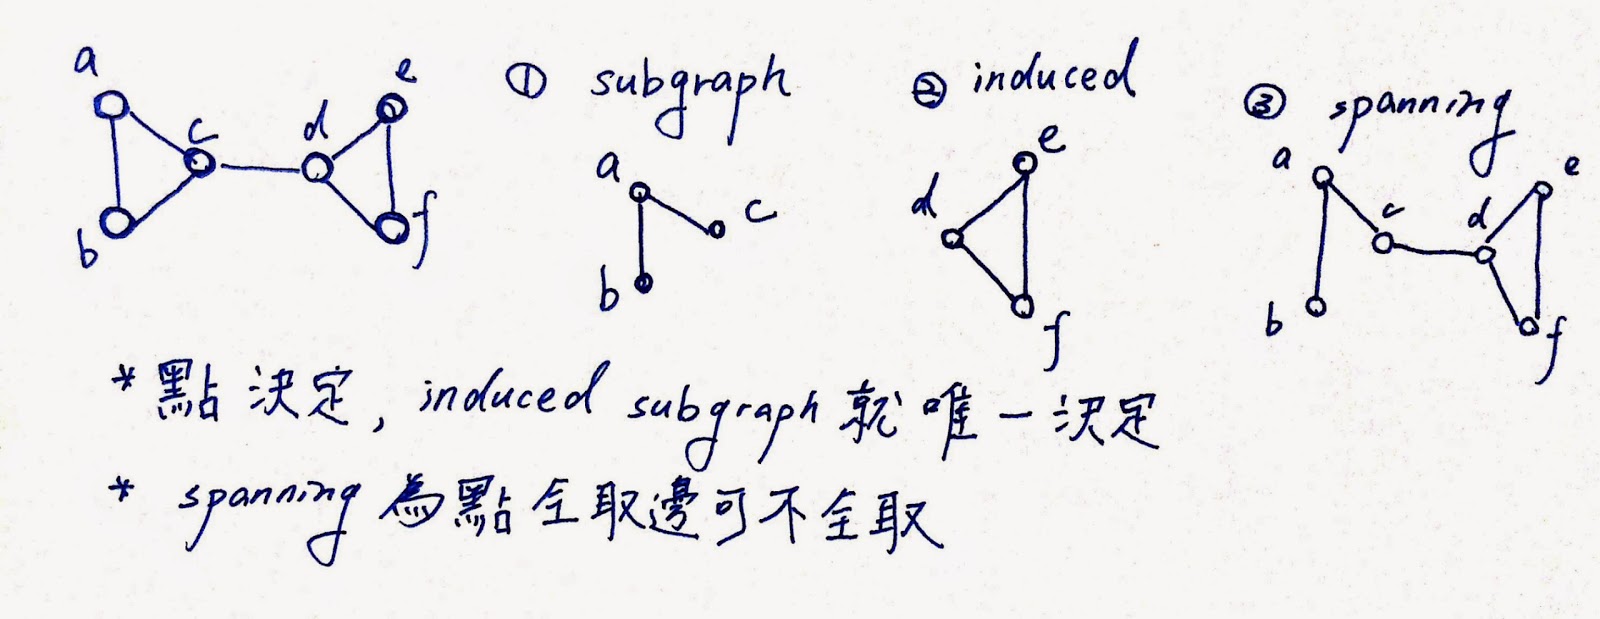 a
b
c
d
e
f
① subgraph
a
b
c
② induced
d
e
f
③ spanning
a
b
c
d
e
f
* 點決定, induced subgraph 就唯一決定
* spanning 為點全取邊可不全取